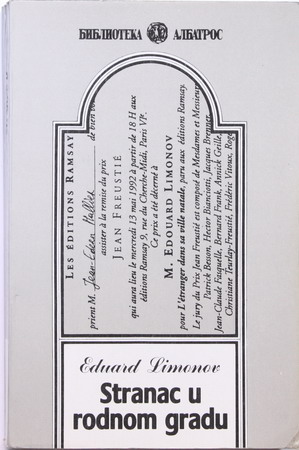 БИБЛИОТЕКА АЛБАТРОС
LES ÉDITIONS RAMSAY
prient M. Jean-Eden Hallier de bien vo
assister à la remise du prix
JEAN FREUSTIÉ
qui aura lieu le mercredi 13 mai 1992 à partir de 18 H aux
éditions Ramsay 9, rue du Cherche-Midi, Paris VIᵉ.
Ce prix a été décerné à
M. EDOUARD LIMONOV
pour L'étranger dans sa ville natale, paru aux éditions Ramsay.
Le jury du Prix Jean Freustié est composé de Mesdames et Messieurs
Patrick Besson, Hector Bianciotti, Jacques Brenner,
Jean-Claude Fasquelle, Bernard Frank, Annick Geille,
Christiane Teurlay-Freustié, Frédéric Vitoux, Roge
Eduard Limonov
Stranac u
rodnom gradu